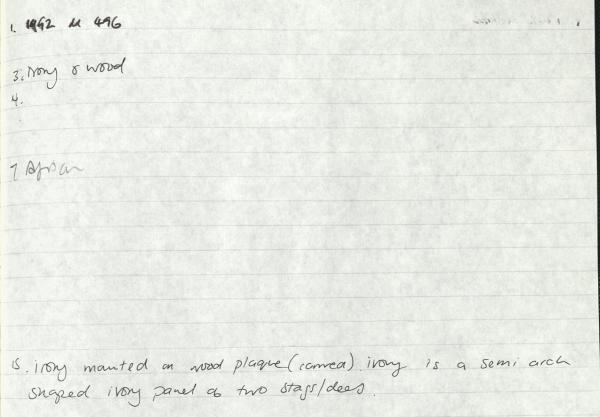 1. 1992 M 496
3. Ivory & wood
4.
7 African
15. ivory mounted on wood plaque (carved). ivory is a semi arch
shaped ivory panel of two stags/deer.